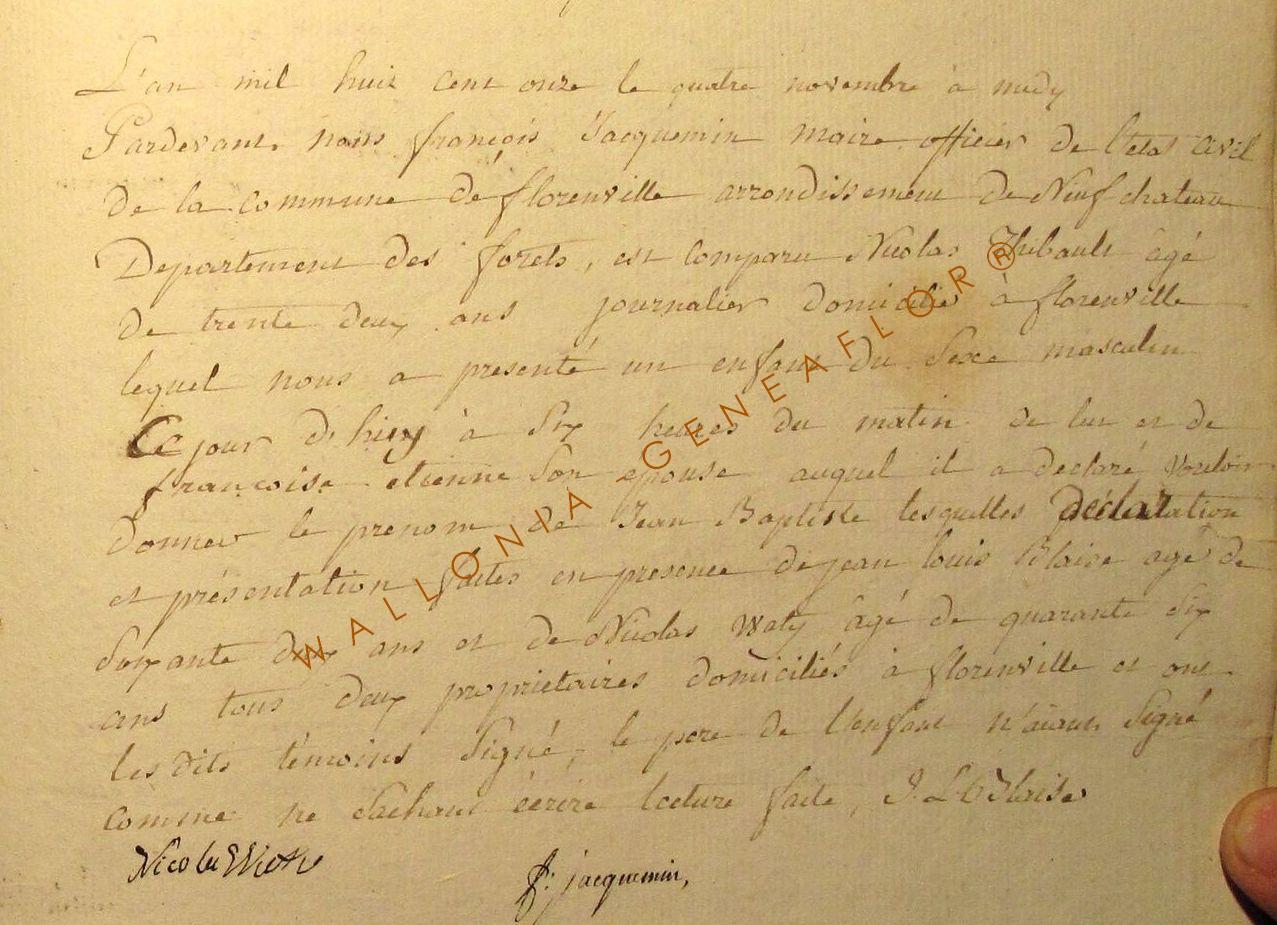 L'an mil huit cent onze le quatre novembre à midy
Pardevant nous françois Jacquemin maire officier de l'etat civil
de la commune de florenville arrondissement de Neufchateau
Departement des forets, est comparu Nicolas Thibault âgé
de trente deux ans journalier domicilié à florenville
lequel nous a presenté un enfant du Sexe masculin
Ce jour d'huy à Six heures du matin de lui et de
françoise etienne Son epouse auquel il a declaré vouloir
donner le prenom de Jean Baptiste lesquelles déclaration
et présentation faites en presence de jean louis Blaise agé de
Soixante deux ans et de Nicolas Waty âgé de quarante Six
ans tous deux proprietaires domiciliés à florenville et ont
les dits témoins Signé, le pere de l'enfant n'aiant Signé
comme ne Sachant écrire lecture faite, J. L Blaise
Nicolas
f: jacquemin,
WALLONIA GENEAFLOR®